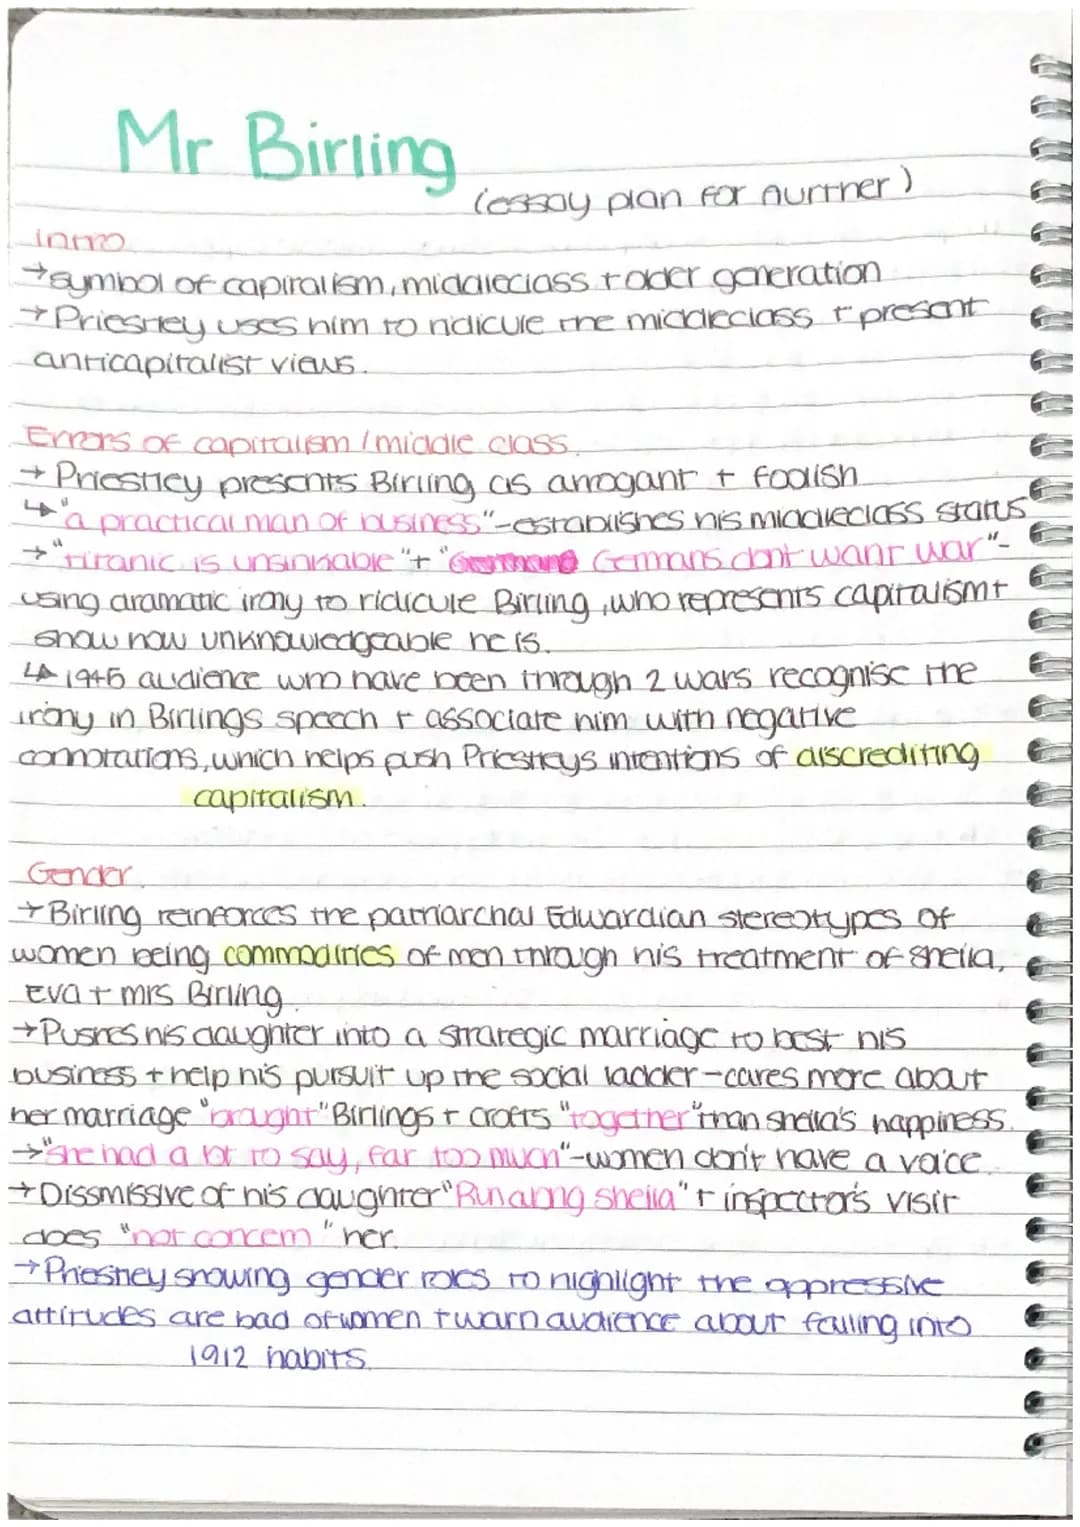 Mr Birling
(essay plan for Aurther)
Intro
→symbol of capitalism, middleclass + older generation
→Priestley uses him to ridicule the middleclass + present
anticapitalist views.
Errors of capitalism / middle class.
→ Priestley presents Birling as arrogant + foolish
↳ "a practical man of business"-establishes his middleclass status
→ "titanic is unsinkable" + " Germans dont want war"-
using dramatic irony to ridicule Birling, who represents capitalism +
show how unknowledgeable he is.
↳ 1945 audience who have been through 2 wars recognise the
irony in Birlings speech + associate him with negative
connotations, which helps push Priestleys intentions of discrediting
capitalism.
Gender.
→Birling reinforces the patriarchal Edwardian stereotypes of
women being commodities of men through his treatment of Sheila,
Eva + mrs Birling.
→Pushes his daughter into a strategic marriage to best his
business + help his pursuit up the social ladder-cares more about
her marriage "brought" Birlings + Crofts "together" than sheila's happiness.
→"she had a lot to say, far too much"-women don't have a voice.
→Dissmissive of his daughter "Run along sheila" + inspector's visit
does "not concern" her.
→Priestley showing gender roles to highlight the oppressive
attitudes are bad of women + warn audience about falling into
1912 habits.